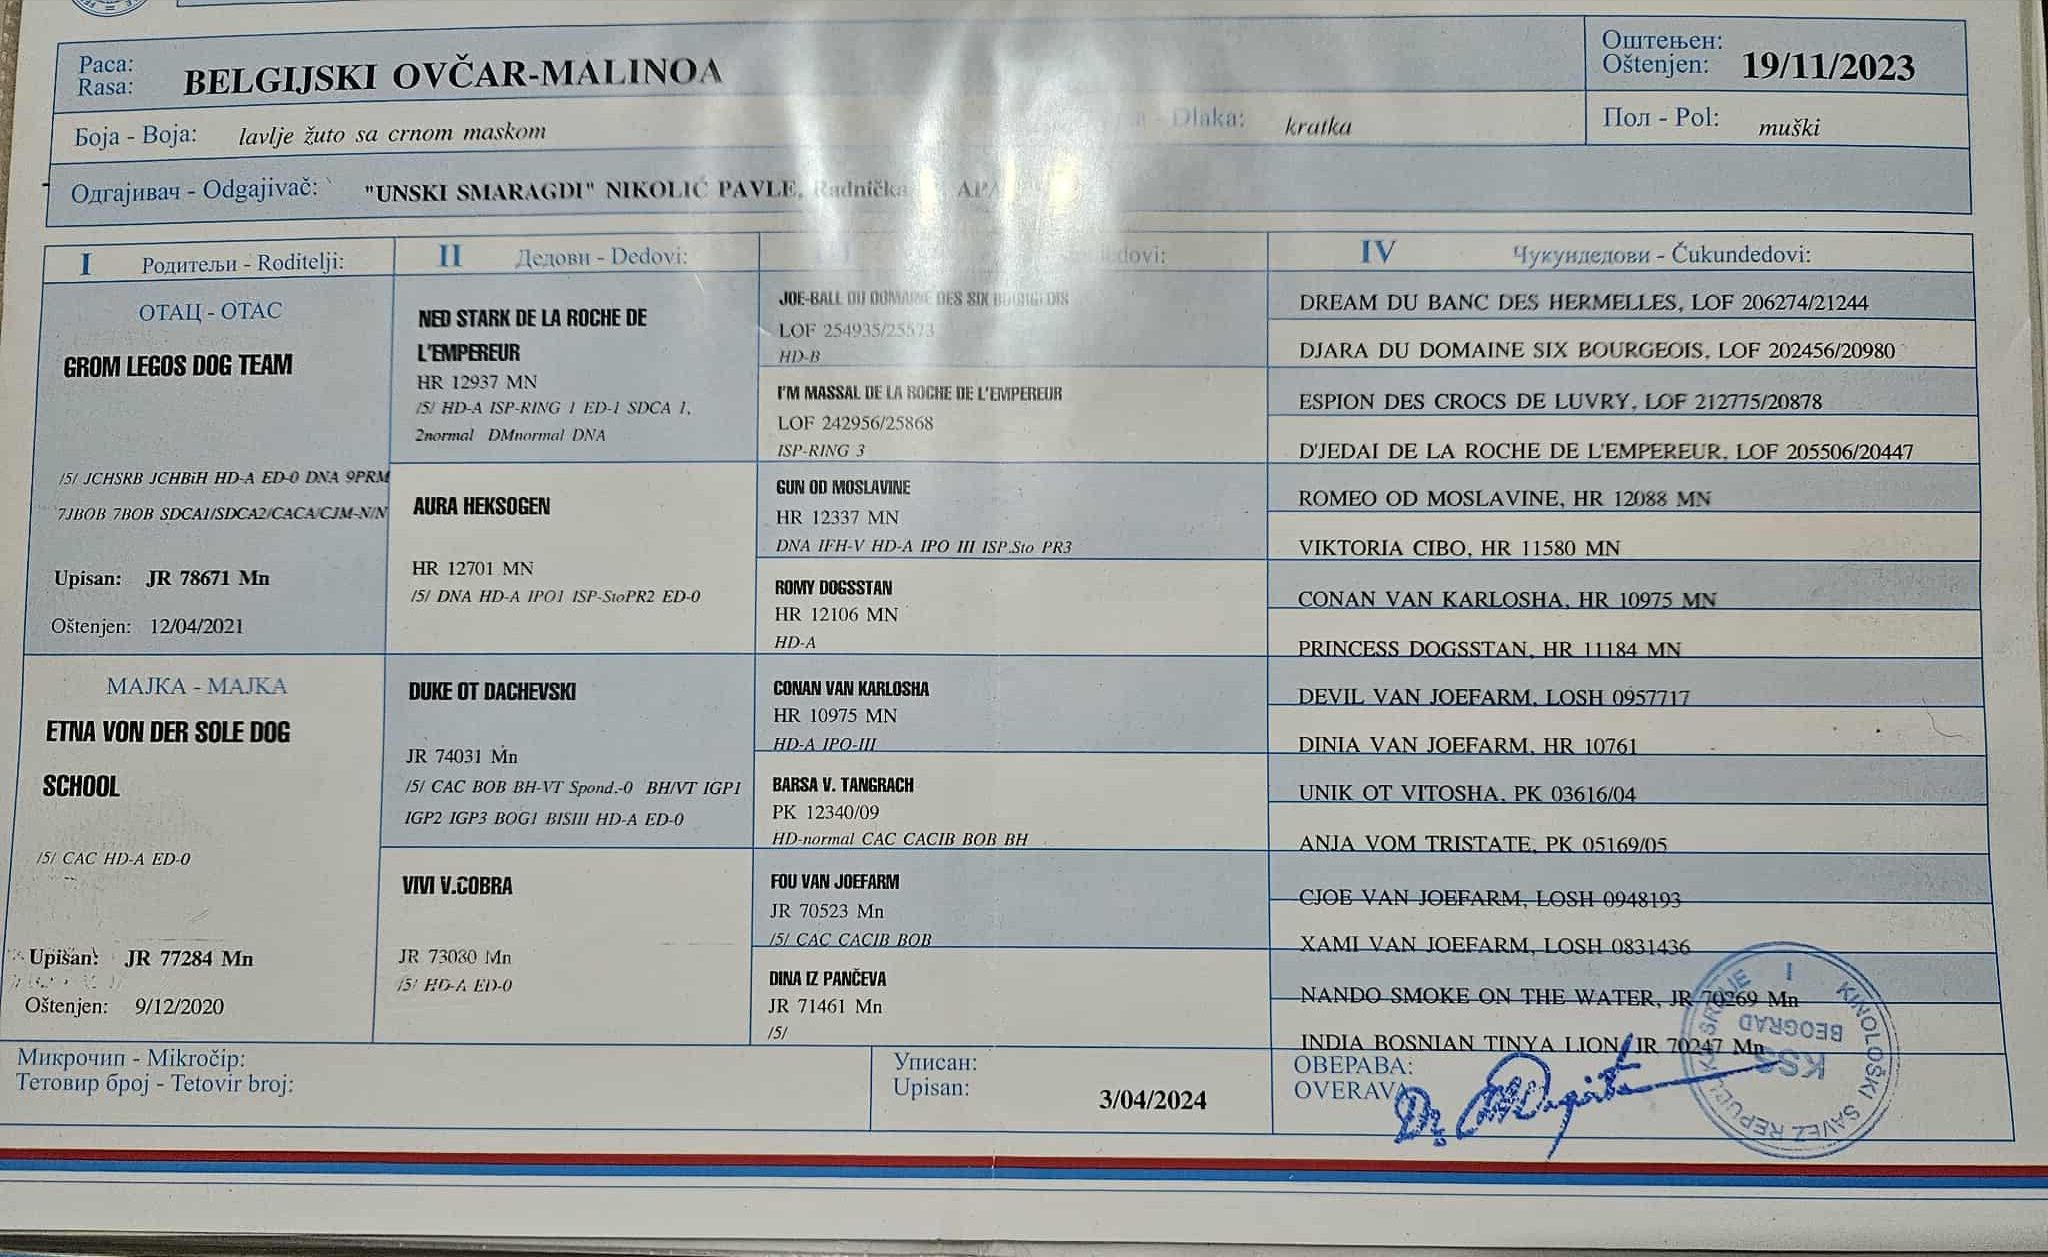 Раса:
Rasa:
BELGIJSKI OVČAR-MALINOA
Оштењен:
Oštenjen:
19/11/2023
Боја - Boja:
lavlje žuto sa crnom maskom
- Dlaka:
kratka
Пол - Pol:
muški
Одгајивач - Odgajivač:
"UNSKI SMARAGDI" NIKOLIĆ PAVLE, Radnička
I Родитељи - Roditelji:
II Дедови - Dedovi:
IV Чукундедови - Čukundedovi:
ОТАЦ - OTAC
GROM LEGOS DOG TEAM
/5/ JCHSRB JCHBiH HD-A ED-0 DNA 9PRM
7JBOB 7BOB SDCA1/SDCA2/CACA/CJM-N/N
Upisan: JR 78671 Mn
Oštenjen: 12/04/2021
МАЈКА - MAJKA
ETNA VON DER SOLE DOG
SCHOOL
/5/ CAC HD-A ED-0
Upisan: JR 77284 Mn
Oštenjen: 9/12/2020
NED STARK DE LA ROCHE DE
L'EMPEREUR
HR 12937 MN
/5/ HD-A ISP-RING 1 ED-1 SDCA 1,
2normal DMnormal DNA
AURA HEKSOGEN
HR 12701 MN
/5/ DNA HD-A IPO1 ISP-StoPR2 ED-0
DUKE OT DACHEVSKI
JR 74031 Mn
/5/ CAC BOB BH-VT Spond.-0 BH/VT IGP1
IGP2 IGP3 BOG1 BISIII HD-A ED-0
VIVI V.COBRA
JR 73080 Mn
/5/ HD-A ED-0
JOE-BALL DU DOMAINE DES SIX BOURGEOIS
LOF 254935/25573
HD-B
I'M MASSAL DE LA ROCHE DE L'EMPEREUR
LOF 242956/25868
ISP-RING 3
GUN OD MOSLAVINE
HR 12337 MN
DNA IFH-V HD-A IPO III ISP.Sto PR3
ROMY DOGSSTAN
HR 12106 MN
HD-A
CONAN VAN KARLOSHA
HR 10975 MN
HD-A IPO-III
BARSA V. TANGRACH
PK 12340/09
HD-normal CAC CACIB BOB BH
FOU VAN JOEFARM
JR 70523 Mn
/5/ CAC CACIB BOB
DINA IZ PANČEVA
JR 71461 Mn
/5/
DREAM DU BANC DES HERMELLES, LOF 206274/21244
DJARA DU DOMAINE SIX BOURGEOIS, LOF 202456/20980
ESPION DES CROCS DE LUVRY, LOF 212775/20878
D'JEDAI DE LA ROCHE DE L'EMPEREUR, LOF 205506/20447
ROMEO OD MOSLAVINE, HR 12088 MN
VIKTORIA CIBO, HR 11580 MN
CONAN VAN KARLOSHA, HR 10975 MN
PRINCESS DOGSSTAN, HR 11184 MN
DEVIL VAN JOEFARM, LOSH 0957717
DINIA VAN JOEFARM, HR 10761
UNIK OT VITOSHA, PK 03616/04
ANJA VOM TRISTATE, PK 05169/05
CJOE VAN JOEFARM, LOSH 0948193
XAMI VAN JOEFARM, LOSH 0831436
NANDO SMOKE ON THE WATER, JR 70269 Mn
INDIA BOSNIAN TINYA LION, JR 70247 Mn
Микрочип - Mikročip:
Тетовир број - Tetovir broj:
Уписан:
Upisan:
3/04/2024
ОВЕРАВА:
OVERAVA
KINOLOŠKI SAVEZ REPUBLIKE SRBIJE
I
BEOGRAD
KSS